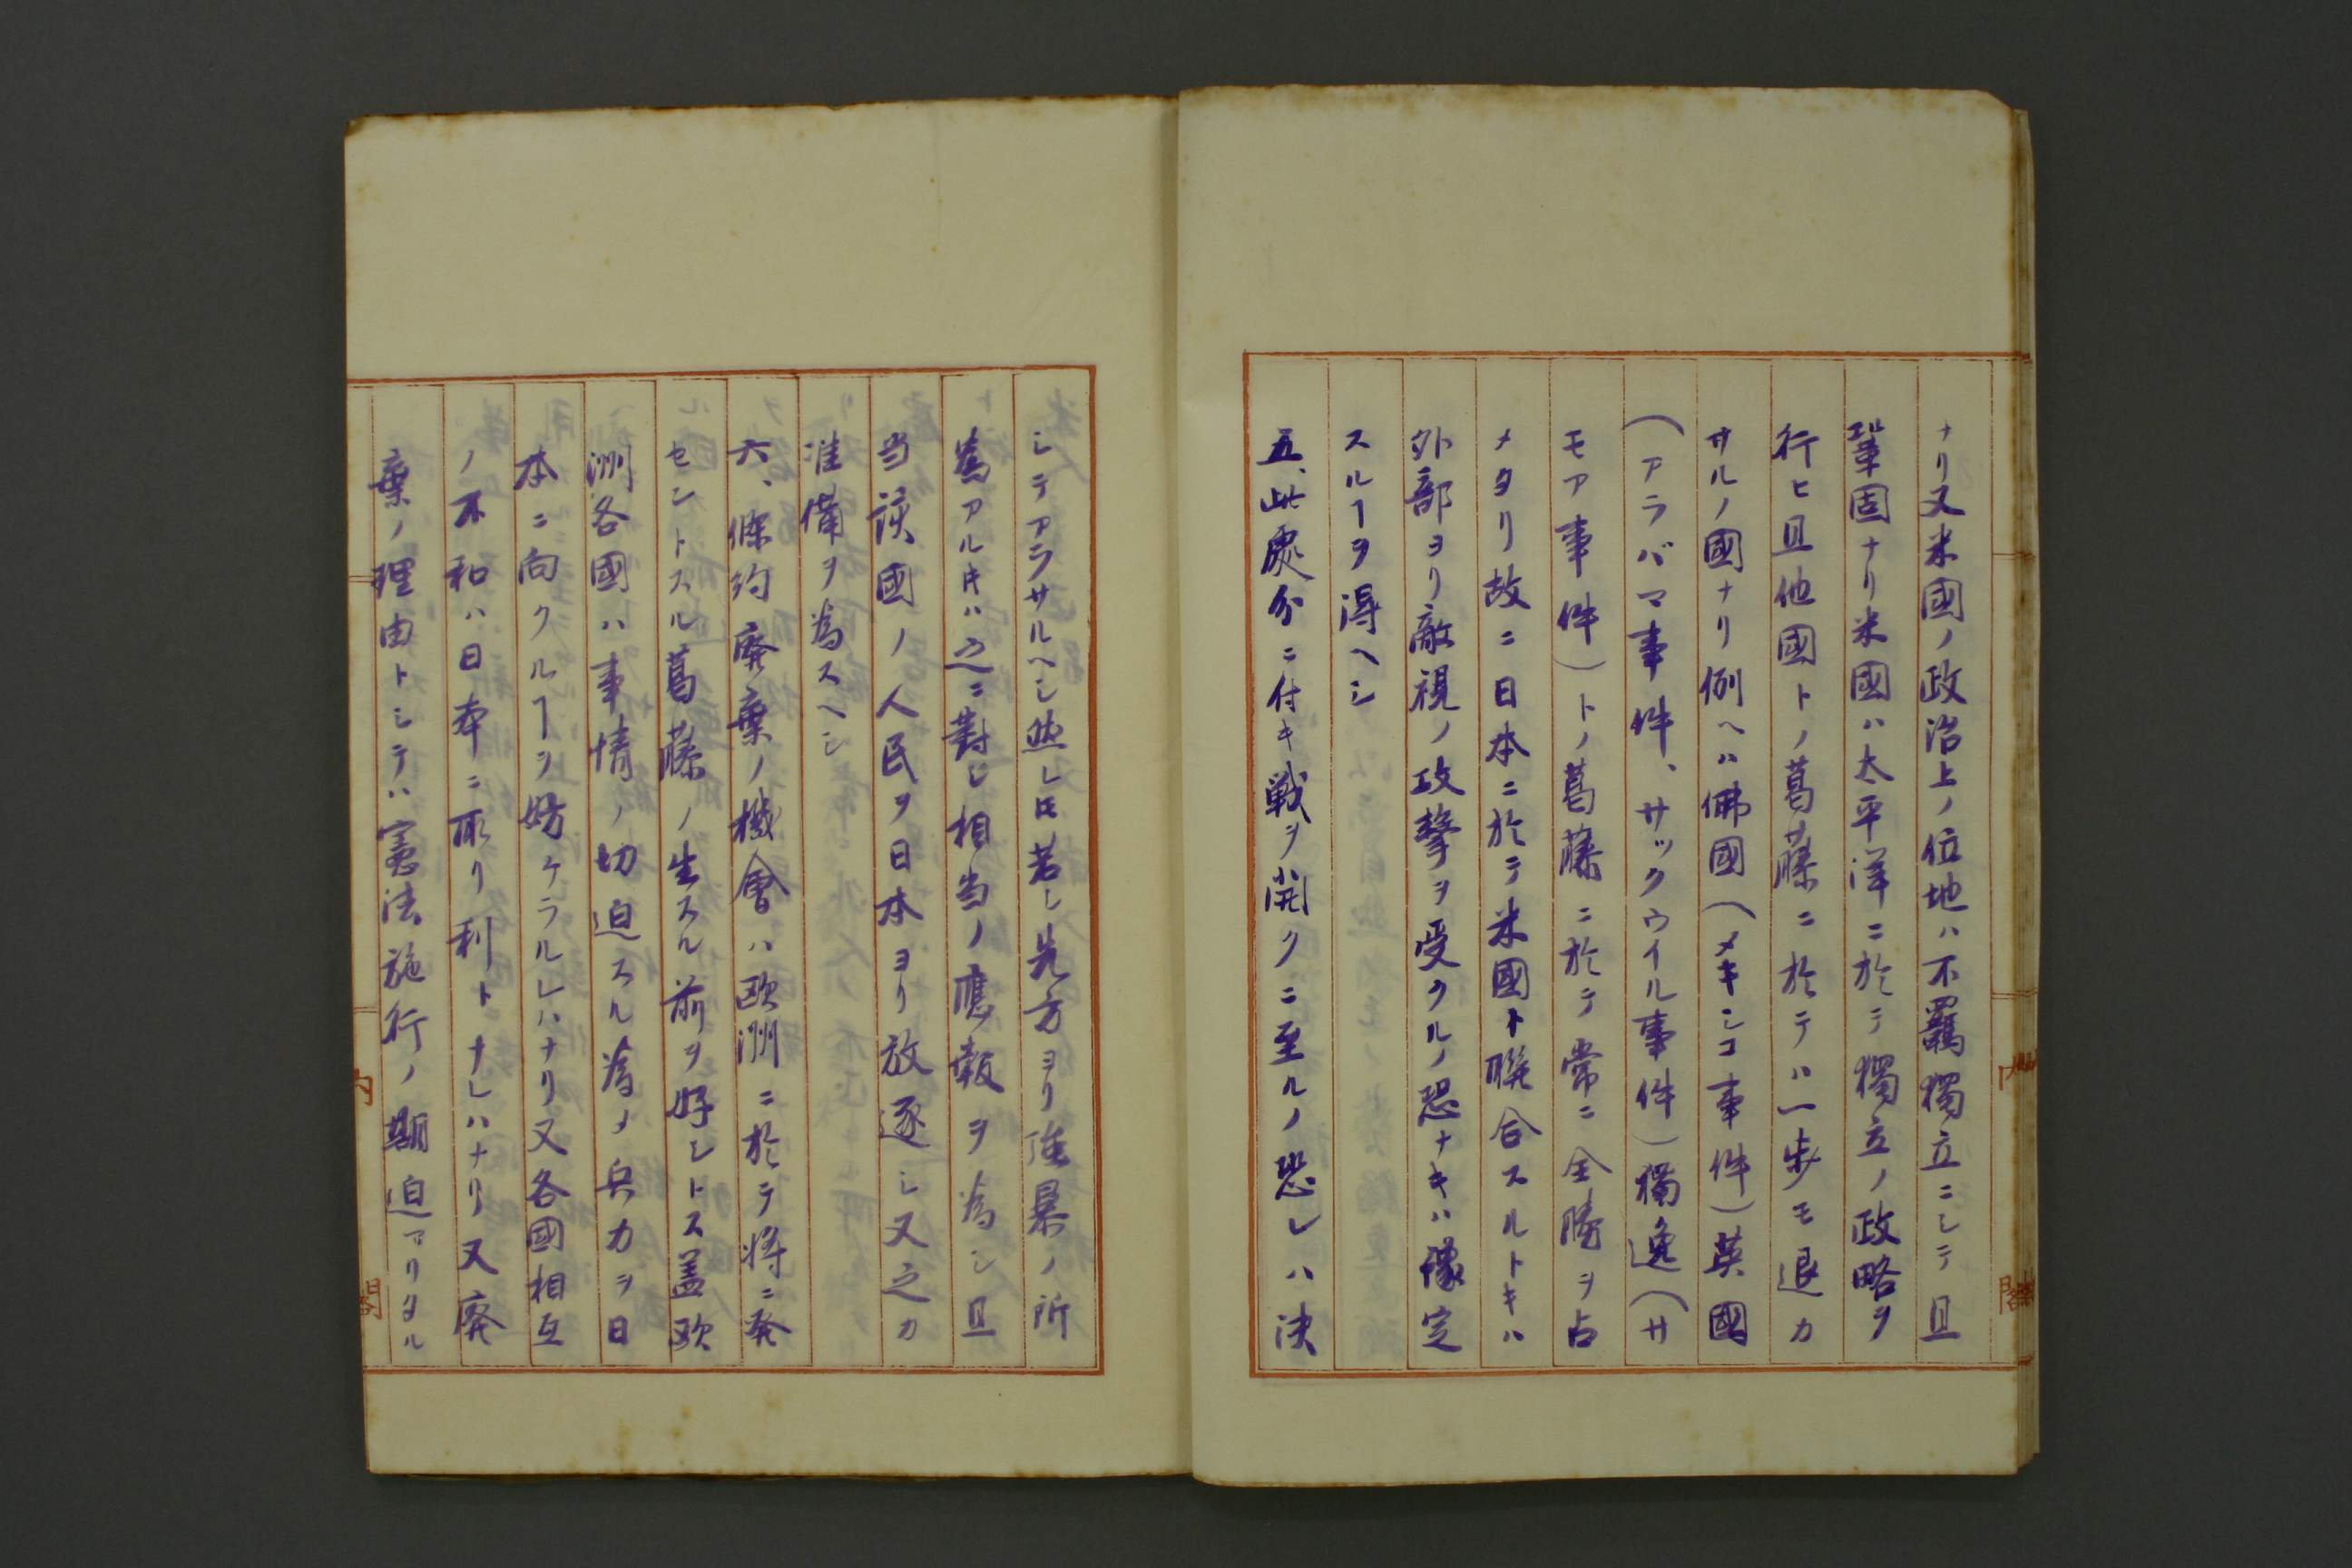 ナリ又米國ノ政治上ノ位地ハ不羈獨立ニシテ且
鞏固ナリ米國ハ太平洋ニ於テ獨立ノ政略ヲ
行ヒ且他國トノ葛藤ニ於テハ一歩モ退カ
サルノ國ナリ例ヘハ佛國(メキシコ事件)英國
(アラバマ事件、サックウイル事件)獨逸(サ
モア事件)トノ葛藤ニ於テ常ニ全勝ヲ占
メタリ故ニ日本ニ於テ米國ト聯合スルトキハ
外部ヨリ敵視ノ攻撃ヲ受クルノ恐ナキハ像定
スルヿヲ得ヘシ
五、此處分ニ付キ戦ヲ開クニ至ルノ恐レハ決
シテアラサルヘシ然レ𪜈若シ先方ヨリ強暴ノ所
為アルキハ之ニ對シ相当ノ應報ヲ為シ且
当該國ノ人民ヲ日本ヨリ放逐シ又之カ
准備ヲ為スヘシ
六、條約廃棄ノ機會ハ欧洲ニ於テ将ニ発
セントスル葛藤ノ生スル前ヲ好シトス蓋欧
洲各國ハ事情ノ切迫スル為メ兵力ヲ日
本ニ向クルヿヲ妨ケラルレハナリ又各國相互
ノ不和ハ日本ニ取リ利トナレハナリ又廃
棄ノ理由トシテハ憲法施行ノ期迫リタル
内閣
内閣